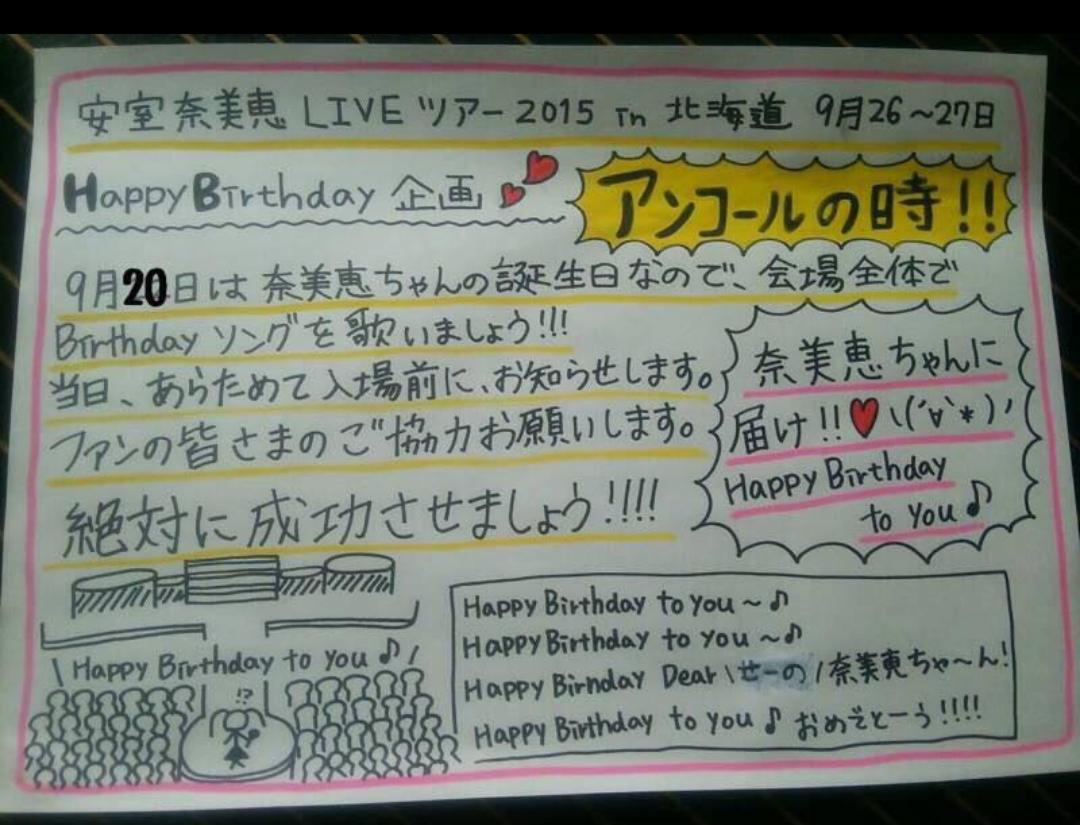 安室奈美恵 LIVE ツアー 2015 in 北海道 9月26～27日
Happy Birthday 企画
アンコールの時!!
9月20日は 奈美恵ちゃんの誕生日なので、会場全体で
Birthday ソングを歌いましょう!!!
当日、あらためて入場前に、お知らせします。
ファンの皆さまのご協力お願いします。
絶対に成功させましょう!!!!
奈美恵ちゃんに
届け!!♥\(´∀`*)/
Happy Birthday
to you♪
\ Happy Birthday to you ♪ /
!?
Happy Birthday to you ～♪
Happy Birthday to you ～♪
Happy Birnday Dear \せーの/奈美恵ちゃ～ん!
Happy Birthday to you ♪ おめでとーう!!!!